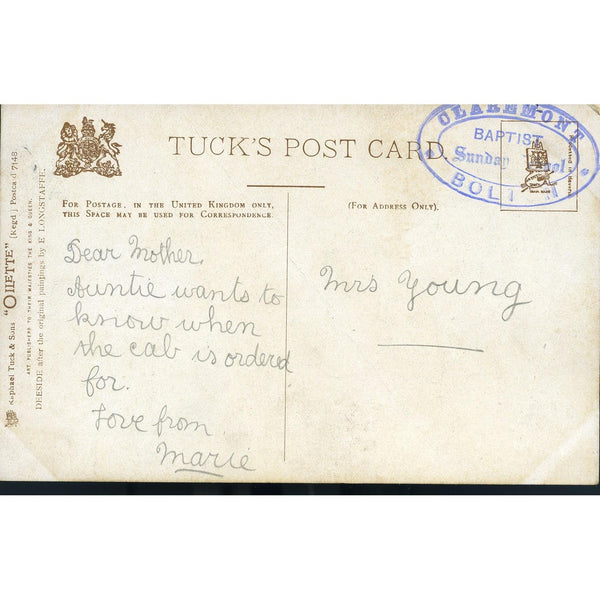 TUCK'S POST CARD.
CLAREMONT
BAPTIST
Sunday
FOR POSTAGE, IN THE UNITED KINGDOM ONLY,
THIS SPACE MAY BE USED FOR CORRESPONDENCE.
(FOR ADDRESS ONLY).
Dear Mother,
Auntie wants to
know when
the cab is ordered
for.
Love from
Marie
Mrs Young
Raphael Tuck & Sons "OILETTE" [Regd.] Postcard 7148
ART PUBLISHERS TO THEIR MAJESTIES THE KING & QUEEN.
DEESIDE after the original paintings by E LONGSTAFFE.